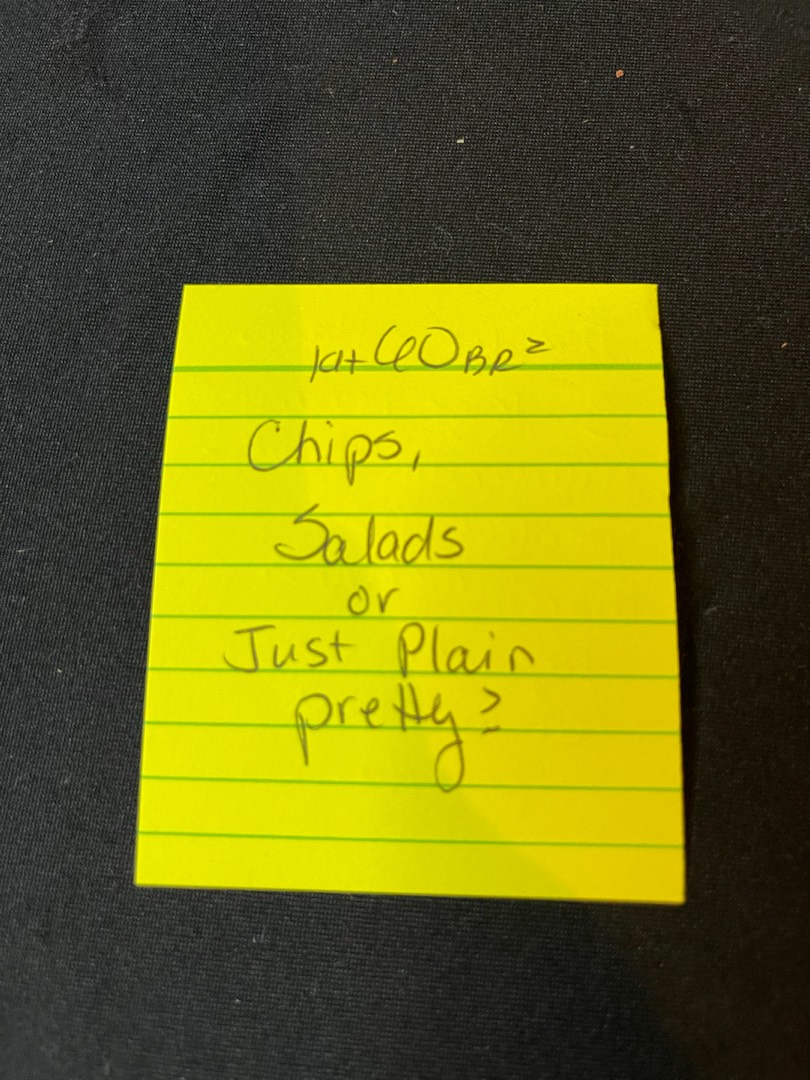 Chips,
Salads
or
Just Plain
pretty?